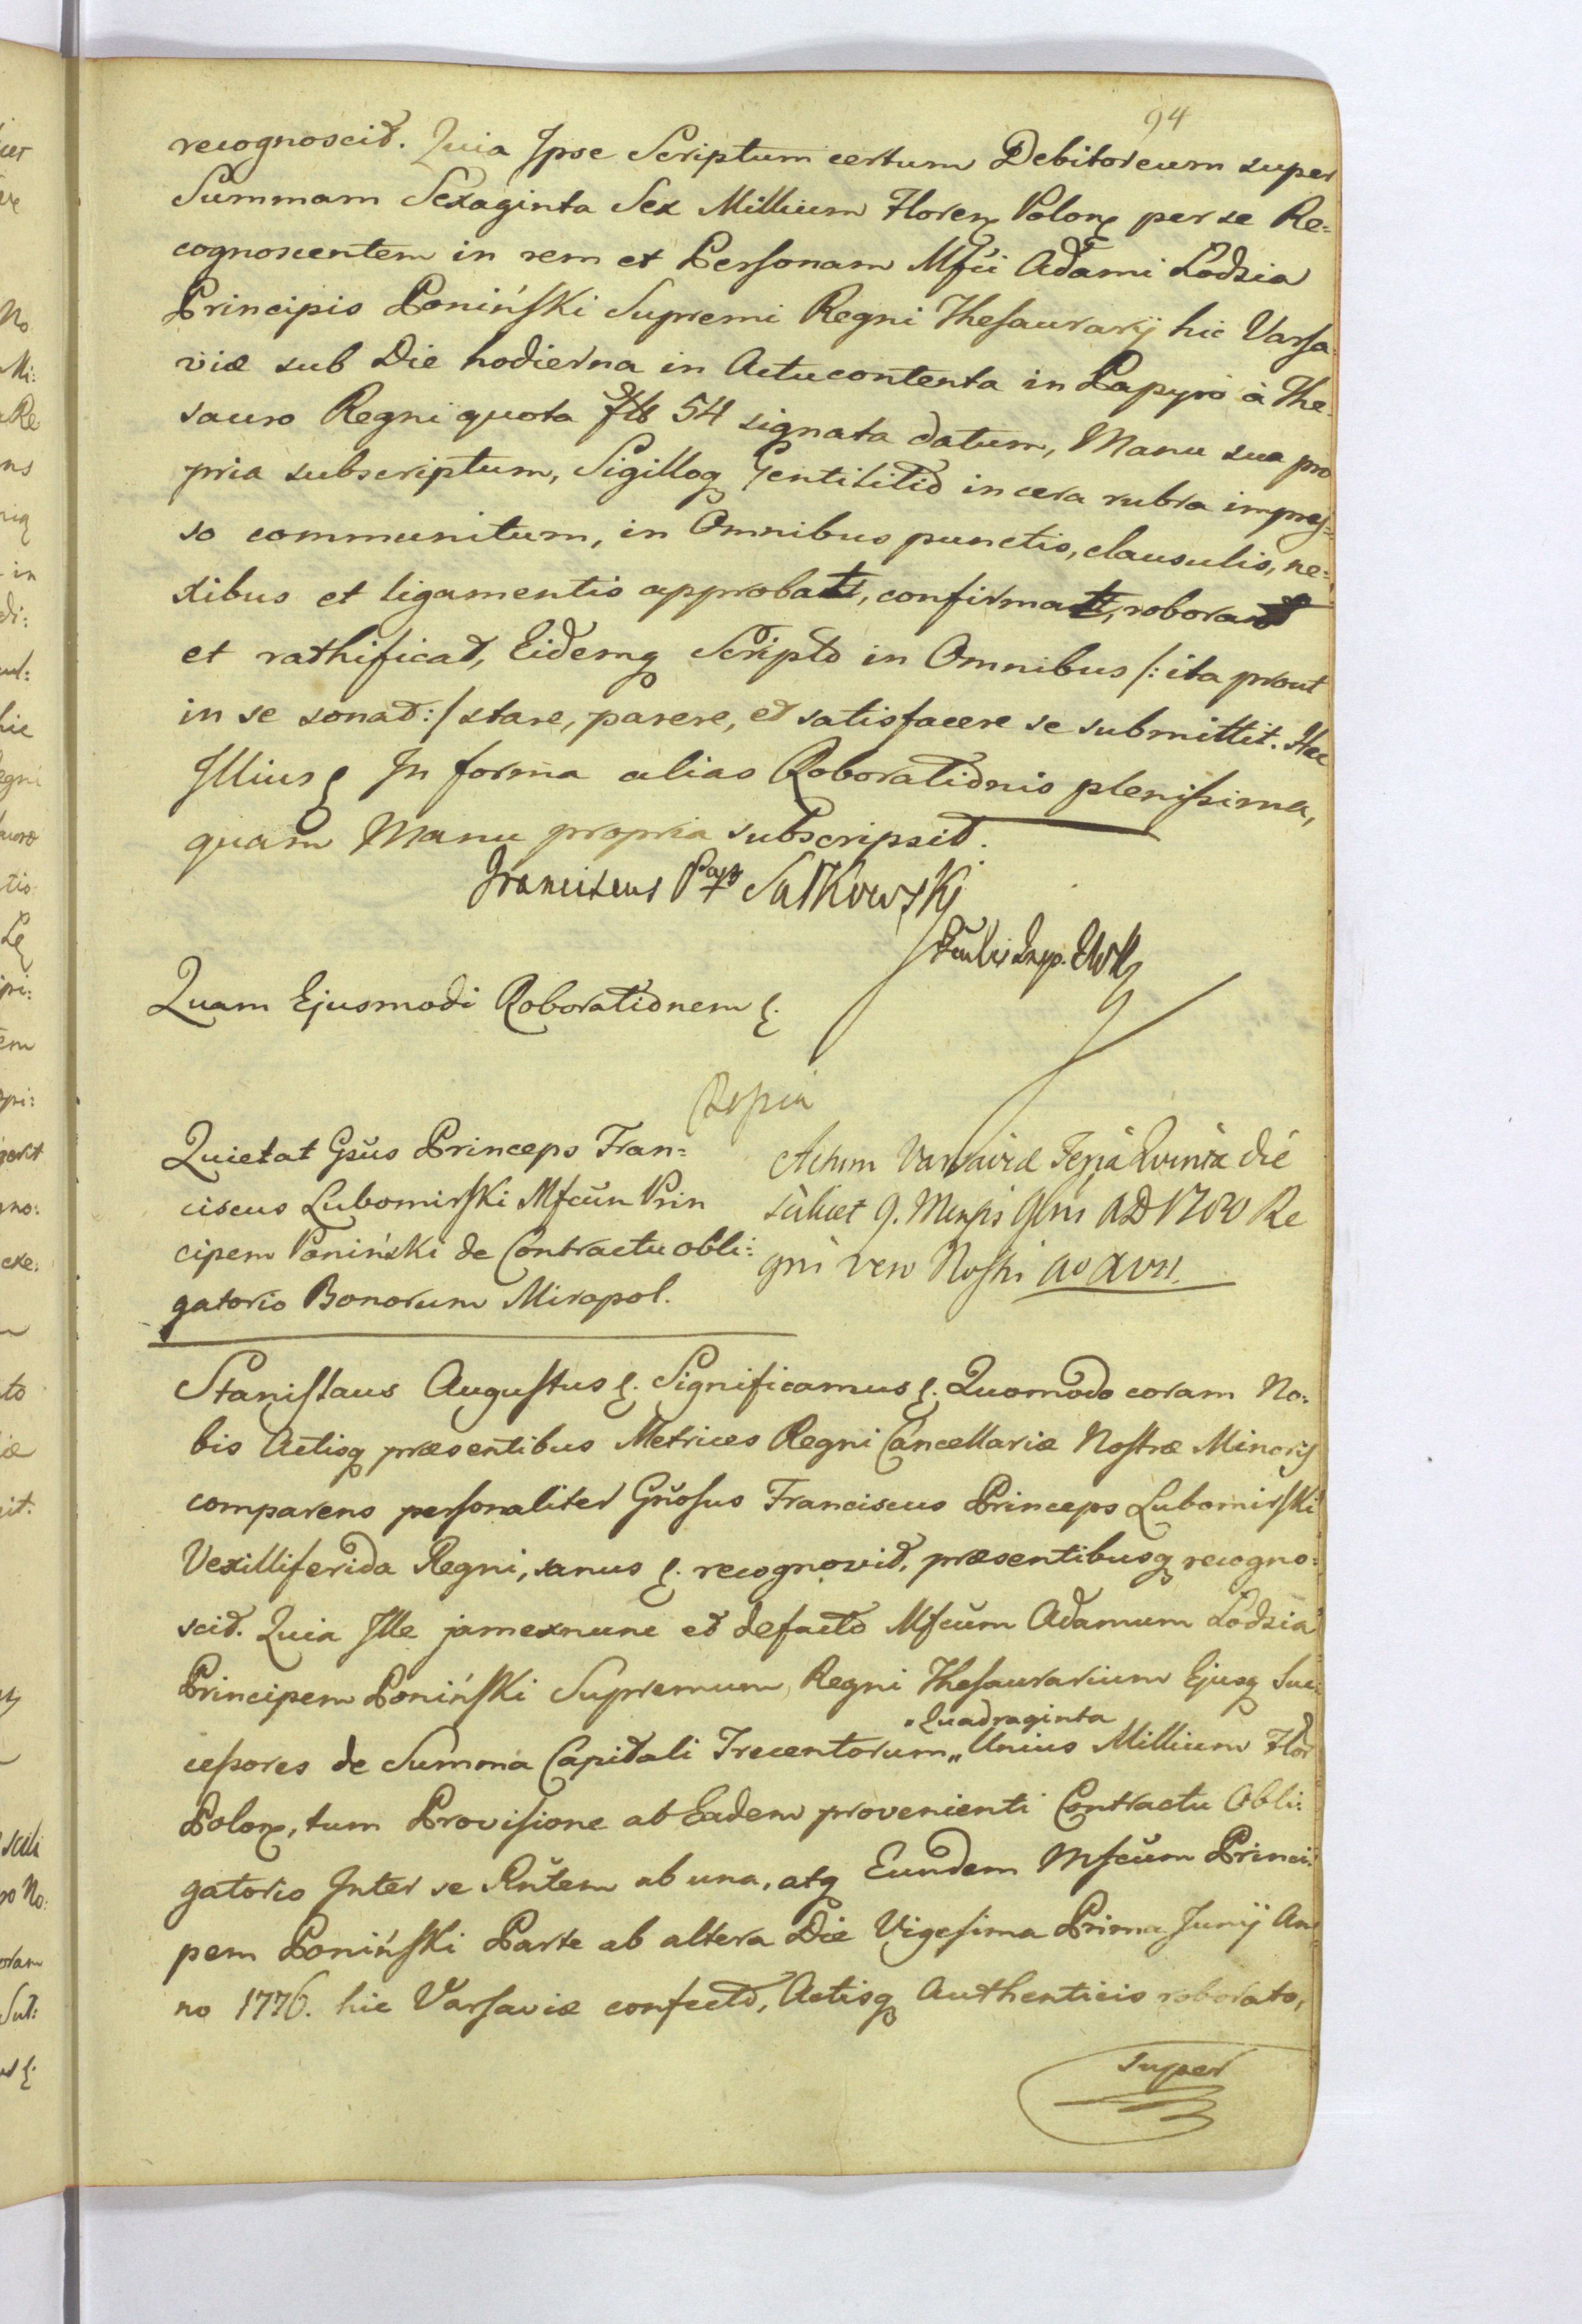 94
recognoscit. Quia Ipse Scriptum certum Debitoreum super
Summam Sexaginta Sex Millium Floren Polon per se Re=
cognoscentem in rem et Personam Mfci Adami Lodzia
Principis Poniński Supremi Regni Thesaurarij hic Varsa
viæ sub Die hodierna in Actu contenta in Papyro à The
sauro Regni quota ftt 54 signata datum, Manu sua pro
pria subscriptum, Sigilloq Gentilitio in cera rubra impres=
so communitum, in Omnibus punctis, clausulis, ne=
xibus et ligamentis approbat, confirmat, roborat
et rathificat, Eidemq Scripto in Omnibus /: ita prout
in se sonat :/ stare, parere, et satisfacere se submittit. Hac
Illius &. In forma alias Roborationis plenissima,
quam Manu propria subscripsit.
Franciscus Sułkowski
Quam Ejusmodi Roborationem &.
Copia
Quietat Gsŭs Princeps Fran=
ciscus Lubomirski Mfcŭm Prin
cipem Poniński de Contractu obli=
gatorio Bonorum Miropol.
Actum Varsaviæ Feria Quinta die
scilicet 9. Mensis 9bris AD 1780 Re
gni vero Nostri ao XVII.
Stanislaus Augustus &. Significamus &. Quomodo coram No=
bis Actisq præsentibus Metrices Regni Cancellariæ Nostræ Minoris
comparens personaliter Gn̆osus Franciscus Princeps Lubomirski
Vexilliferida Regni, sanus &. recognovit, præsentibusq recogno=
scit. Quia Ille jam exnunc et defacto Mfcŭm Adamum Lodzia
Principem Poniński Supremum Regni Thesaurarium Ejusq Suc=
"Quadraginta
cessores de Summa Capitali Trecentorum „ Unius Millium Flor
Polon, tum Provisione ab Eadem provenienti Contractu Obli=
gatorio Inter se Rn̆tem ab una, atq Eundem Mfcŭm Princi=
pem Poniński Parte ab altera Die Vigesima Prima Junij An
no 1776. hic Varsaviæ confecto, Actisq Authenticis roborato,
super